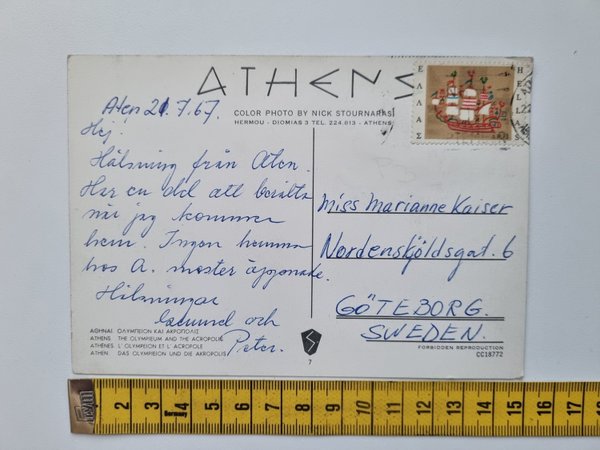 ATHENS
COLOR PHOTO BY NICK STOURNARAS
HERMOU - DIOMIAS 3 TEL. 224.813 - ATHENS
ΕΛΛΑΣ
HELLAS
Aten 21.7.67.
Hej.
Hälsning från Aten.
Har en del att berätta
när jag kommer
hem. Ingen hemma
hos A. moster öppnade.
Hälsningar
och
Peter.
Miss Marianne Kaiser
Nordenskjöldsgat. 6
GÖTEBORG.
SWEDEN.
ΑΘΗΝΑΙ ΟΛΥΜΠΕΙΟΝ ΚΑΙ ΑΚΡΟΠΟΛΙΣ
ATHENS THE OLYMPIEUM AND THE ACROPOLIS
ATHÈNES L'OLYMPEION ET L'ACROPOLE
ATHEN DAS OLYMPIEION UND DIE AKROPOLIS
7
FORBIDDEN REPRODUCTION
CC18772
2 3 4 5 6 7 8 9 10 11 12 13 14 15 16 17
Germany